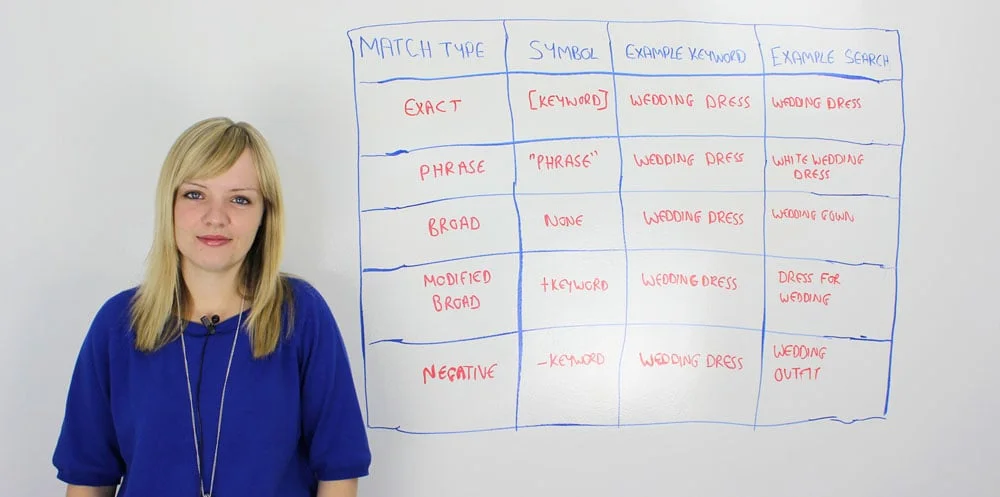 MATCH TYPE SYMBOL EXAMPLE KEYWORD EXAMPLE SEARCH
EXACT [KEYWORD] WEDDING DRESS WEDDING DRESS
PHRASE "PHRASE" WEDDING DRESS WHITE WEDDING
DRESS
BROAD NONE WEDDING DRESS WEDDING GOWN
MODIFIED
BROAD +KEYWORD WEDDING DRESS DRESS FOR
WEDDING
NEGATIVE -KEYWORD WEDDING DRESS WEDDING
OUTFIT